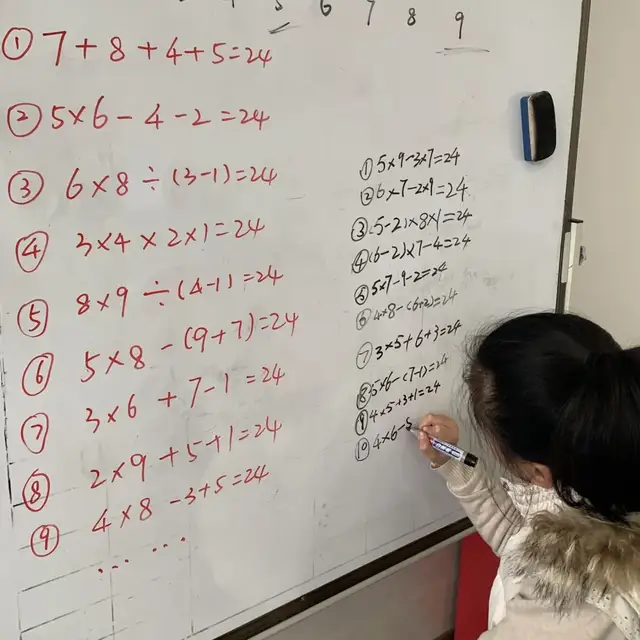 5 6 7 8 9
① 7+8+4+5=24
② 5×6-4-2=24
③ 6×8÷(3-1)=24
④ 3×4×2×1=24
⑤ 8×9÷(4-1)=24
⑥ 5×8-(9+7)=24
⑦ 3×6+7-1=24
⑧ 2×9+5+1=24
⑨ 4×8-3+5=24
... ...
① 5×9-3×7=24
② 6×7-2×9=24
③ (5-2)×8×1=24
④ (6-2)×7-4=24
⑤ 5×7-9-2=24
⑥ 4×8-(6+2)=24
⑦ 3×5+6+3=24
⑧ 5×6-(7-1)=24
⑨ 4×5+3+1=24
⑩ 4×6-5